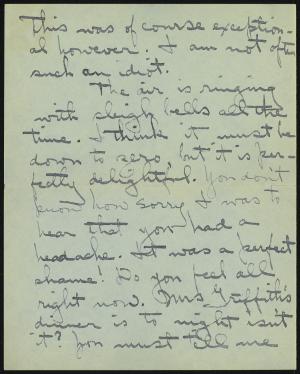 This was of course exception-
al however. I am not often
such an idiot.
The air is ringing
with sleigh bells all the
time. I think it must be
down to zero, but it is per-
fectly delightful. You don't
know how sorry I was to
hear that you had a
headache. It was a perfect
shame! Do you feel all
right now. Mrs Griffith's
dinner is to night isn't
it? You must tell me